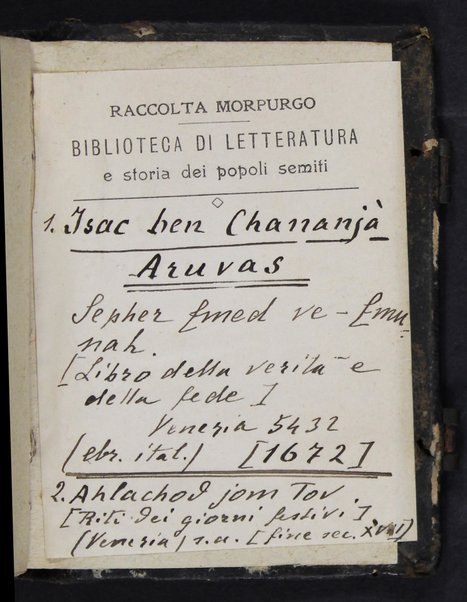 RACCOLTA MORPURGO
BIBLIOTECA DI LETTERATURA
e storia dei popoli semiti
1. Isac ben Chananjà
Aruvas
Sepher Emed ve-Emu
nah.
[Libro della verità e
della fede]
Venezia 5432
(ebr. ital.) [1672]
2. Ahlachod jom Tov.
[Riti dei giorni festivi]
(Venezia) s.a. [fine sec. XVII]